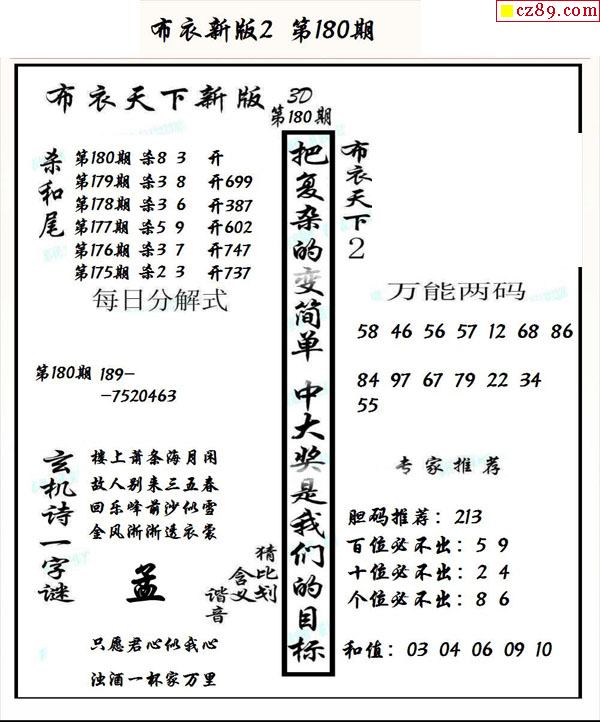 cz89.com
布衣新版2 第180期
布衣天下新版 3D
第180期
杀和尾
第180期 杀8 3 开
第179期 杀3 8 开699
第178期 杀3 6 开387
第177期 杀5 9 开602
第176期 杀3 7 开747
第175期 杀2 3 开737
每日分解式
第180期 189-
-7520463
玄机诗一字谜
楼上萧条海月闲
故人别来三五春
回乐峰前沙似雪
金风淅淅透衣裳
孟
猜比划
含义
谐音
只愿君心似我心
浊酒一杯家万里
把复杂的变简单 中大奖是我们的目标
布衣天下2
万能两码
58 46 56 57 12 68 86
84 97 67 79 22 34
55
专家推荐
胆码推荐：213
百位必不出：5 9
十位必不出：2 4
个位必不出：8 6
和值：03 04 06 09 10